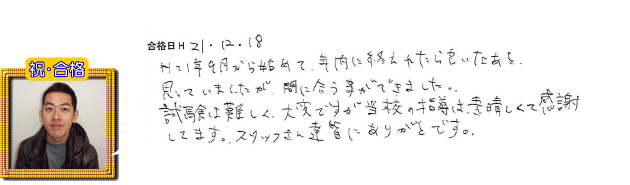 祝・合格
合格日 H 21・12・18
H21年9月から始めて、年内に終わったら良いなあと、
思っていましたが、間に合う事ができました。
試験は難しく、大変ですが当校の指導は素晴しくて感謝
してます。スタッフさん達皆にありがとです。